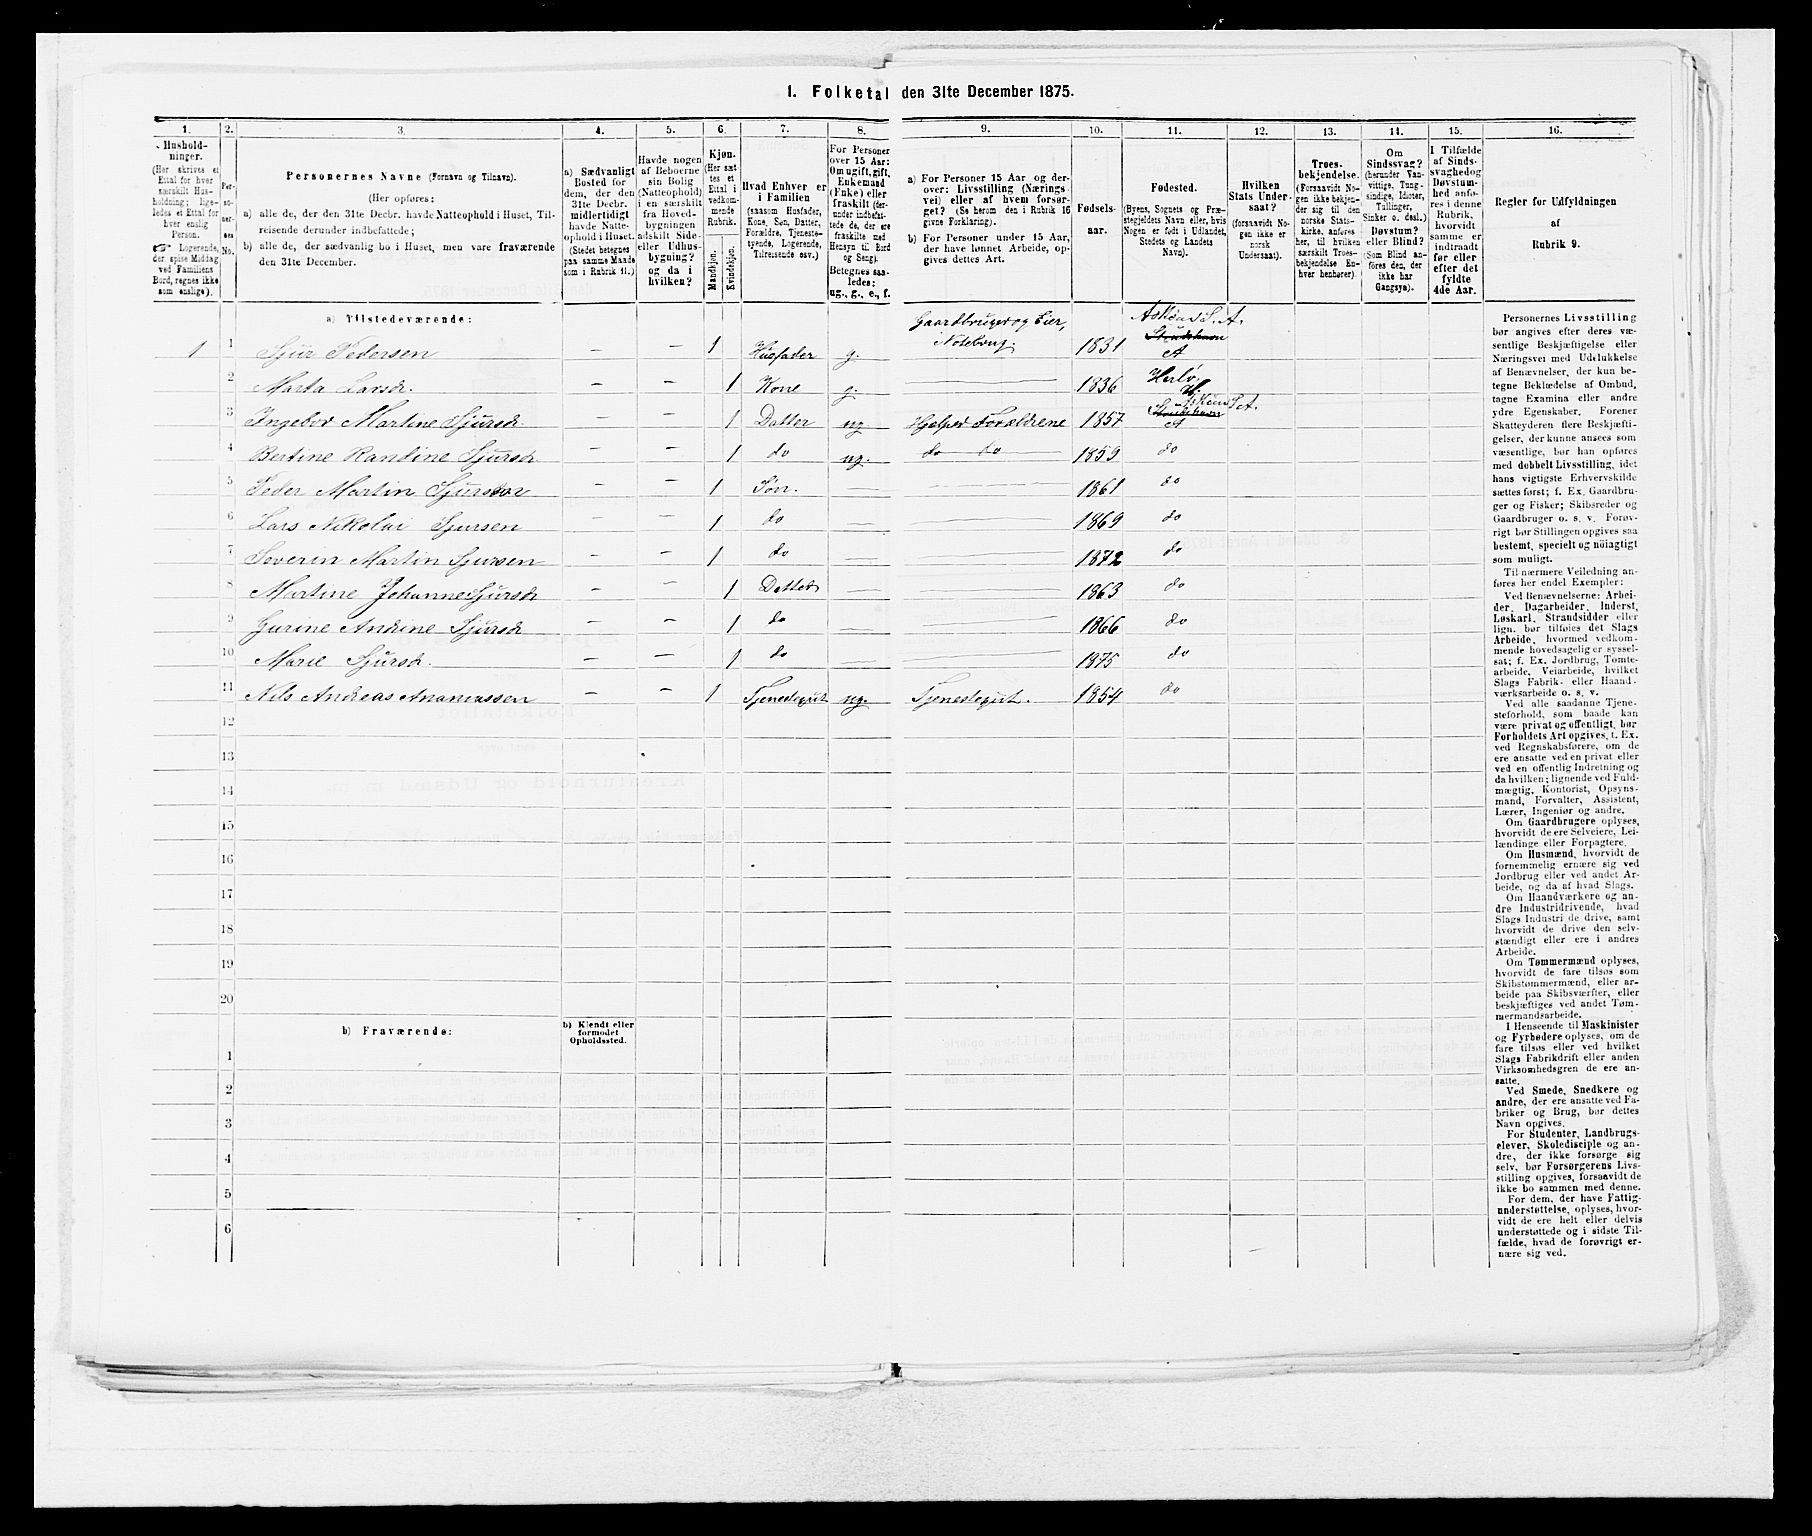 1. Folketal den 31te December 1875.
1. 2. 3. 4. 5. 6. 7. 8. 9. 10. 11. 12. 13. 14. 15. 16.
Hushold-
ninger.
(Her skrives et
Ettal for hver
særskilt Hus-
holdning; lige-
ledes et Ettal for
hver enslig
Person.
☞ Logerende,
der spise Middag
ved Familiens
Bord, regnes ikke
som enslige).
Per-
so-
ner-
nes
No.
Personernes Navne (Fornavn og Tilnavn).
(Her opføres:
a) alle de, der den 31te Decbr. havde Natteophold i Huset, Til-
reisende derunder indbefattede;
b) alle de, der sædvanlig bo i Huset, men vare fraværende
den 31te December.
a) Sædvanligt
Bosted for
dem, der den
31te Decbr.
midlertidigt
havde Natte-
ophold i Huset.
(Stedet betegnes
paa samme Maade
som i Rubrik 11.)
Havde nogen
af Beboerne
sin Bolig
(Natteophold)
i en særskilt
fra Hoved-
bygningen
adskilt Side-
eller Udhus-
bygning?
og da i
hvilken?
Kjøn.
(Her sæt-
tes et
Ettal i
vedkom-
mende
Rubrik.
Mandkjøn.
Kvindekjøn.
Hvad Enhver er
i Familien
(saasom Husfader,
Kone, Søn, Datter,
Forældre, Tjeneste-
tyende, Logerende,
Tilreisende osv.)
For Personer
over 15 Aar:
Om ugift, gift,
Enkemand
(Enke) eller
fraskilt (der-
under indbefat-
tede de, der ere
fraskilte med
Hensyn til Bord
og Seng).
Betegnes saa-
ledes:
ug., g., e., f.
a) For Personer 15 Aar og der-
over: Livsstilling (Nærings-
vei) eller af hvem forsør-
get? (Se herom den i Rubrik 16
givne Forklaring).
b) For Personer under 15 Aar,
der have lønnet Arbeide, op-
gives dettes Art.
Fødsels-
aar.
Fødested.
(Byens, Sognets og Præ-
stegjeldets Navn eller, hvis
Nogen er født i Udlandet,
Stedets og Landets
Navn).
Hvilken
Stats Under-
saat?
(forsaavidt No-
gen ikke er
norsk
Undersaat).
Troes-
bekjendelse.
(Forsaavidt No-
gen ikke bekjen-
der sig til den
norske Stats-
kirke, anføres
her, til hvilken
særskilt Troes-
bekjendelse En-
hver henhører).
Om
Sindssvag?
(herunder Van-
vittige, Tung-
sindige, Idioter,
Tullinger,
Sinker o. desl.)
Døvstum?
eller Blind?
(Som Blind an-
føres den, der
ikke har
Gangsyn).
I Tilfælde
af Sinds-
svaghed og
Døvstum-
hed anfø-
res i denne
Rubrik,
hvorvidt
samme er
indtraadt
før eller
efter det
fyldte
4de Aar.
Regler for Udfyldningen
af
Rubrik 9.
a) Tilstedeværende:
1 1 Sjur Pedersen — — 1 Husfader g. Gaardbruger og Eier, i Notebrug. 1831 Askøens S. A. Strudshavn A
2 Marta Larsdr. — — 1 Kone g. — 1836 Herlø H.
3 Ingebor Martine Sjursdr. — — 1 Datter ug Hjelper Forældrene 1857 Askøens S. A. Strudshavn A
4 Bertine Randine Sjursdr. — — 1 do ug. do do 1859 do
5 Peder Martin Sjursen — — 1 Søn. — — 1861 do
6 Lars Nikolai Sjursen — — 1 do — — 1869 do
7 Severin Martin Sjursen — — 1 do — — 1872 do
8 Martine Johanne Sjursdr — — 1 Datter — — 1863 do
9 Gurine Andrine Sjursdr — — 1 do — — 1866 do
10 Marie Sjursdr. — — 1 do — — 1875 do
11 Nils Andreas Ananiassen — — 1 Tjenestegut ug. Tjenestegut. 1854 do
12
13
14
15
16
17
18
19
20
b) Fraværende:
b) Kjendt eller
formodet
Opholdssted.
1
2
3
4
5
6
Personernes Livsstilling
bør angives efter deres væ-
sentlige Beskjæftigelse eller
Næringsvei med Udelukkelse
af Benævnelser, der kun be-
tegne Beklædelse af Ombud,
tagne Examina eller andre
ydre Egenskaber. Forener
Skatteyderen flere Beskjæfti-
gelser, der kunne ansees som
væsentlige, bør han opføres
med dobbelt Livsstilling, idet
hans vigtigste Erhvervskilde
sættes først; f. Ex. Gaardbru-
ger og Fisker; Skibsreder og
Gaardbruger o. s. v. Forøv-
rigt bør Stillingen opgives saa
bestemt, specielt og nöiagtigt
som muligt.
Til nærmere Veiledning an-
føres her endel Exempler:
Ved Benævnelserne: Arbei-
der, Dagarbeider, Inderst,
Løskarl, Strandsidder eller
lign. bør tilføies det Slags
Arbeide, hvormed vedkom-
mende hovedsagelig er syssel-
sat; f. Ex. Jordbrug, Tomte-
arbeide, Veiarbeide, hvilket
Slags Fabrik- eller Haand-
værksarbeide o. s. v.
Ved alle saadanne Tjene-
steforhold, som baade kan
være privat og offentligt, bør
Forholdets Art opgives, t. Ex.
ved Regnskabsførere, om de
ere ansatte ved en privat eller
ved en offentlig Indretning og
da hvilken; lignende ved Fuld-
mægtig, Kontorist, Opsyns-
mand, Forvalter, Assistent,
Lærer, Ingeniør og andre.
Om Gaardbrugere oplyses,
hvorvidt de ere Selveiere, Lei-
lændinge eller Forpagtere.
Om Husmænd, hvorvidt de
fornemmelig ernære sig ved
Jordbrug eller ved andet Ar-
beide, og da af hvad Slags.
Om Haandværkere og an-
dre Industridrivende, hvad
Slags Industri de drive, samt
hvorvidt de drive den selv-
stændigt eller ere i andres
Arbeide.
Om Tømmermænd oplyses,
hvorvidt de fare tilsøs som
Skibstømmermænd, eller ar-
beide paa Skibsværfter, eller
beskjæftiges ved andet Tøm-
mermandsarbeide.
I Henseende til Maskinister
og Fyrbødere oplyses, om de
fare tilsøs eller ved hvilket
Slags Fabrikdrift eller anden
Virksomhedsgren de ere an-
satte.
Ved Smede, Snedkere og
andre, der ere ansatte ved Fa-
briker og Brug, bør dettes
Navn opgives.
For Studenter, Landbrugs-
elever, Skoledisciple og an-
dre, der ikke forsørge sig
selv, bør Forsørgerens Livs-
stilling opgives, forsaavidt de
ikke bo sammen med denne.
For dem, der have Fattig-
understøttelse, oplyses, hvor-
vidt de ere helt eller delvis
understøttede og i sidste Til-
fælde, hvad de forøvrigt er-
nære sig ved.